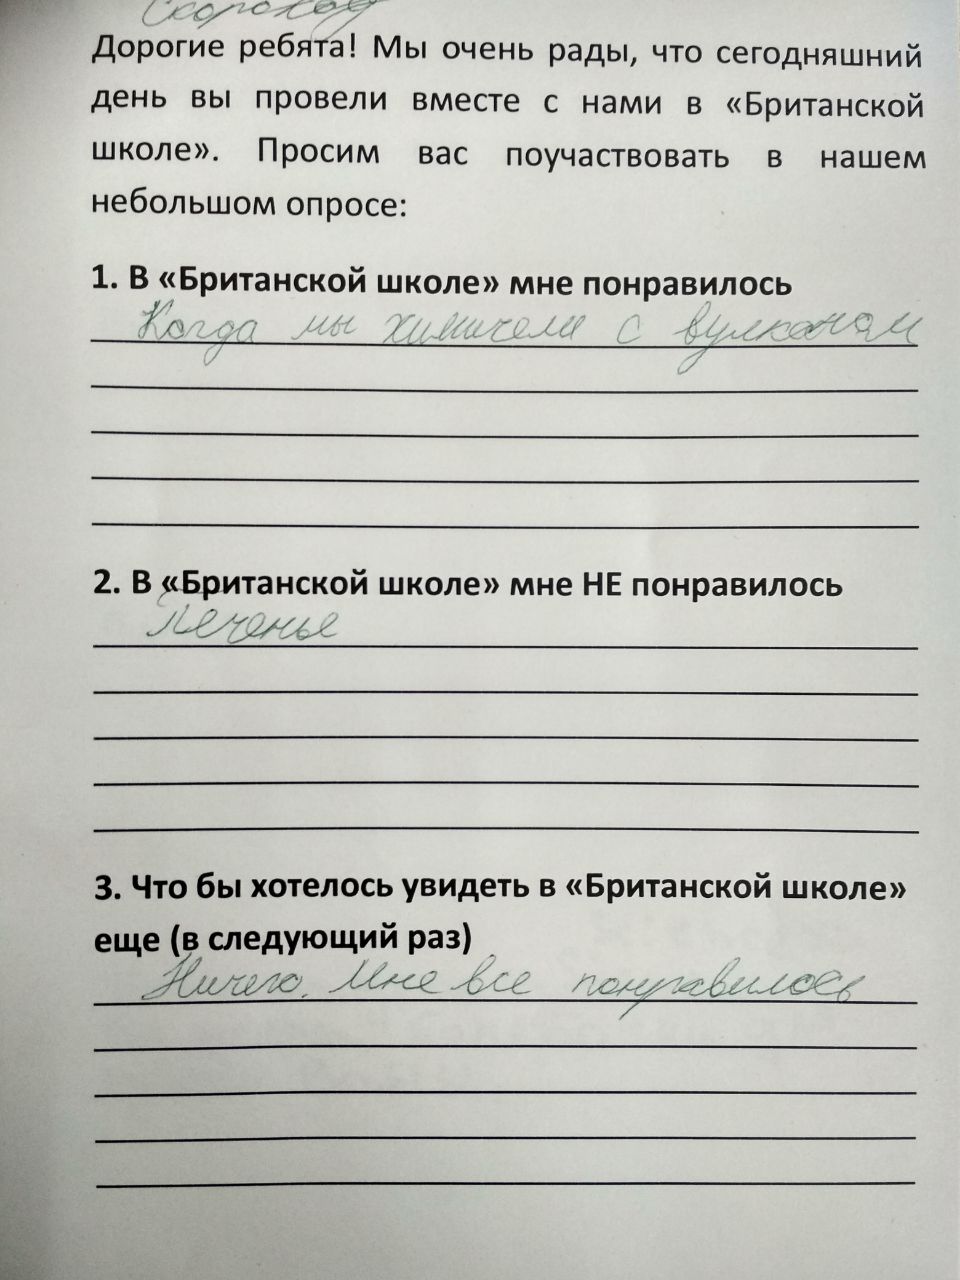 Дорогие ребята! Мы очень рады, что сегодняшний
день вы провели вместе с нами в «Британской
школе». Просим вас поучаствовать в нашем
небольшом опросе:
1. В «Британской школе» мне понравилось
Когда мы химичели с вулканам
2. В «Британской школе» мне НЕ понравилось
Печенье
3. Что бы хотелось увидеть в «Британской школе»
еще (в следующий раз)
Ничего. Мне все понравилось